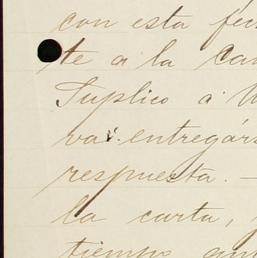 con esta
te a la
Suplico a
va entregárs
respuesta. —
la carta,
tiempo